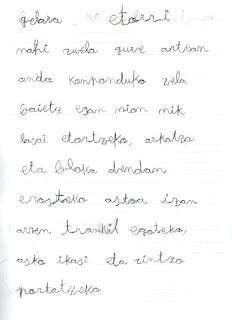 gelara etorri
nahi zuela gure artean
ondo konponduko zela
baietz esan nion nik
lasai etortzeko, arkatza
eta bloka dendan
erosteko astoa izan
arren trankil egoteko,
asko ikasi eta zintzo
portatzeko